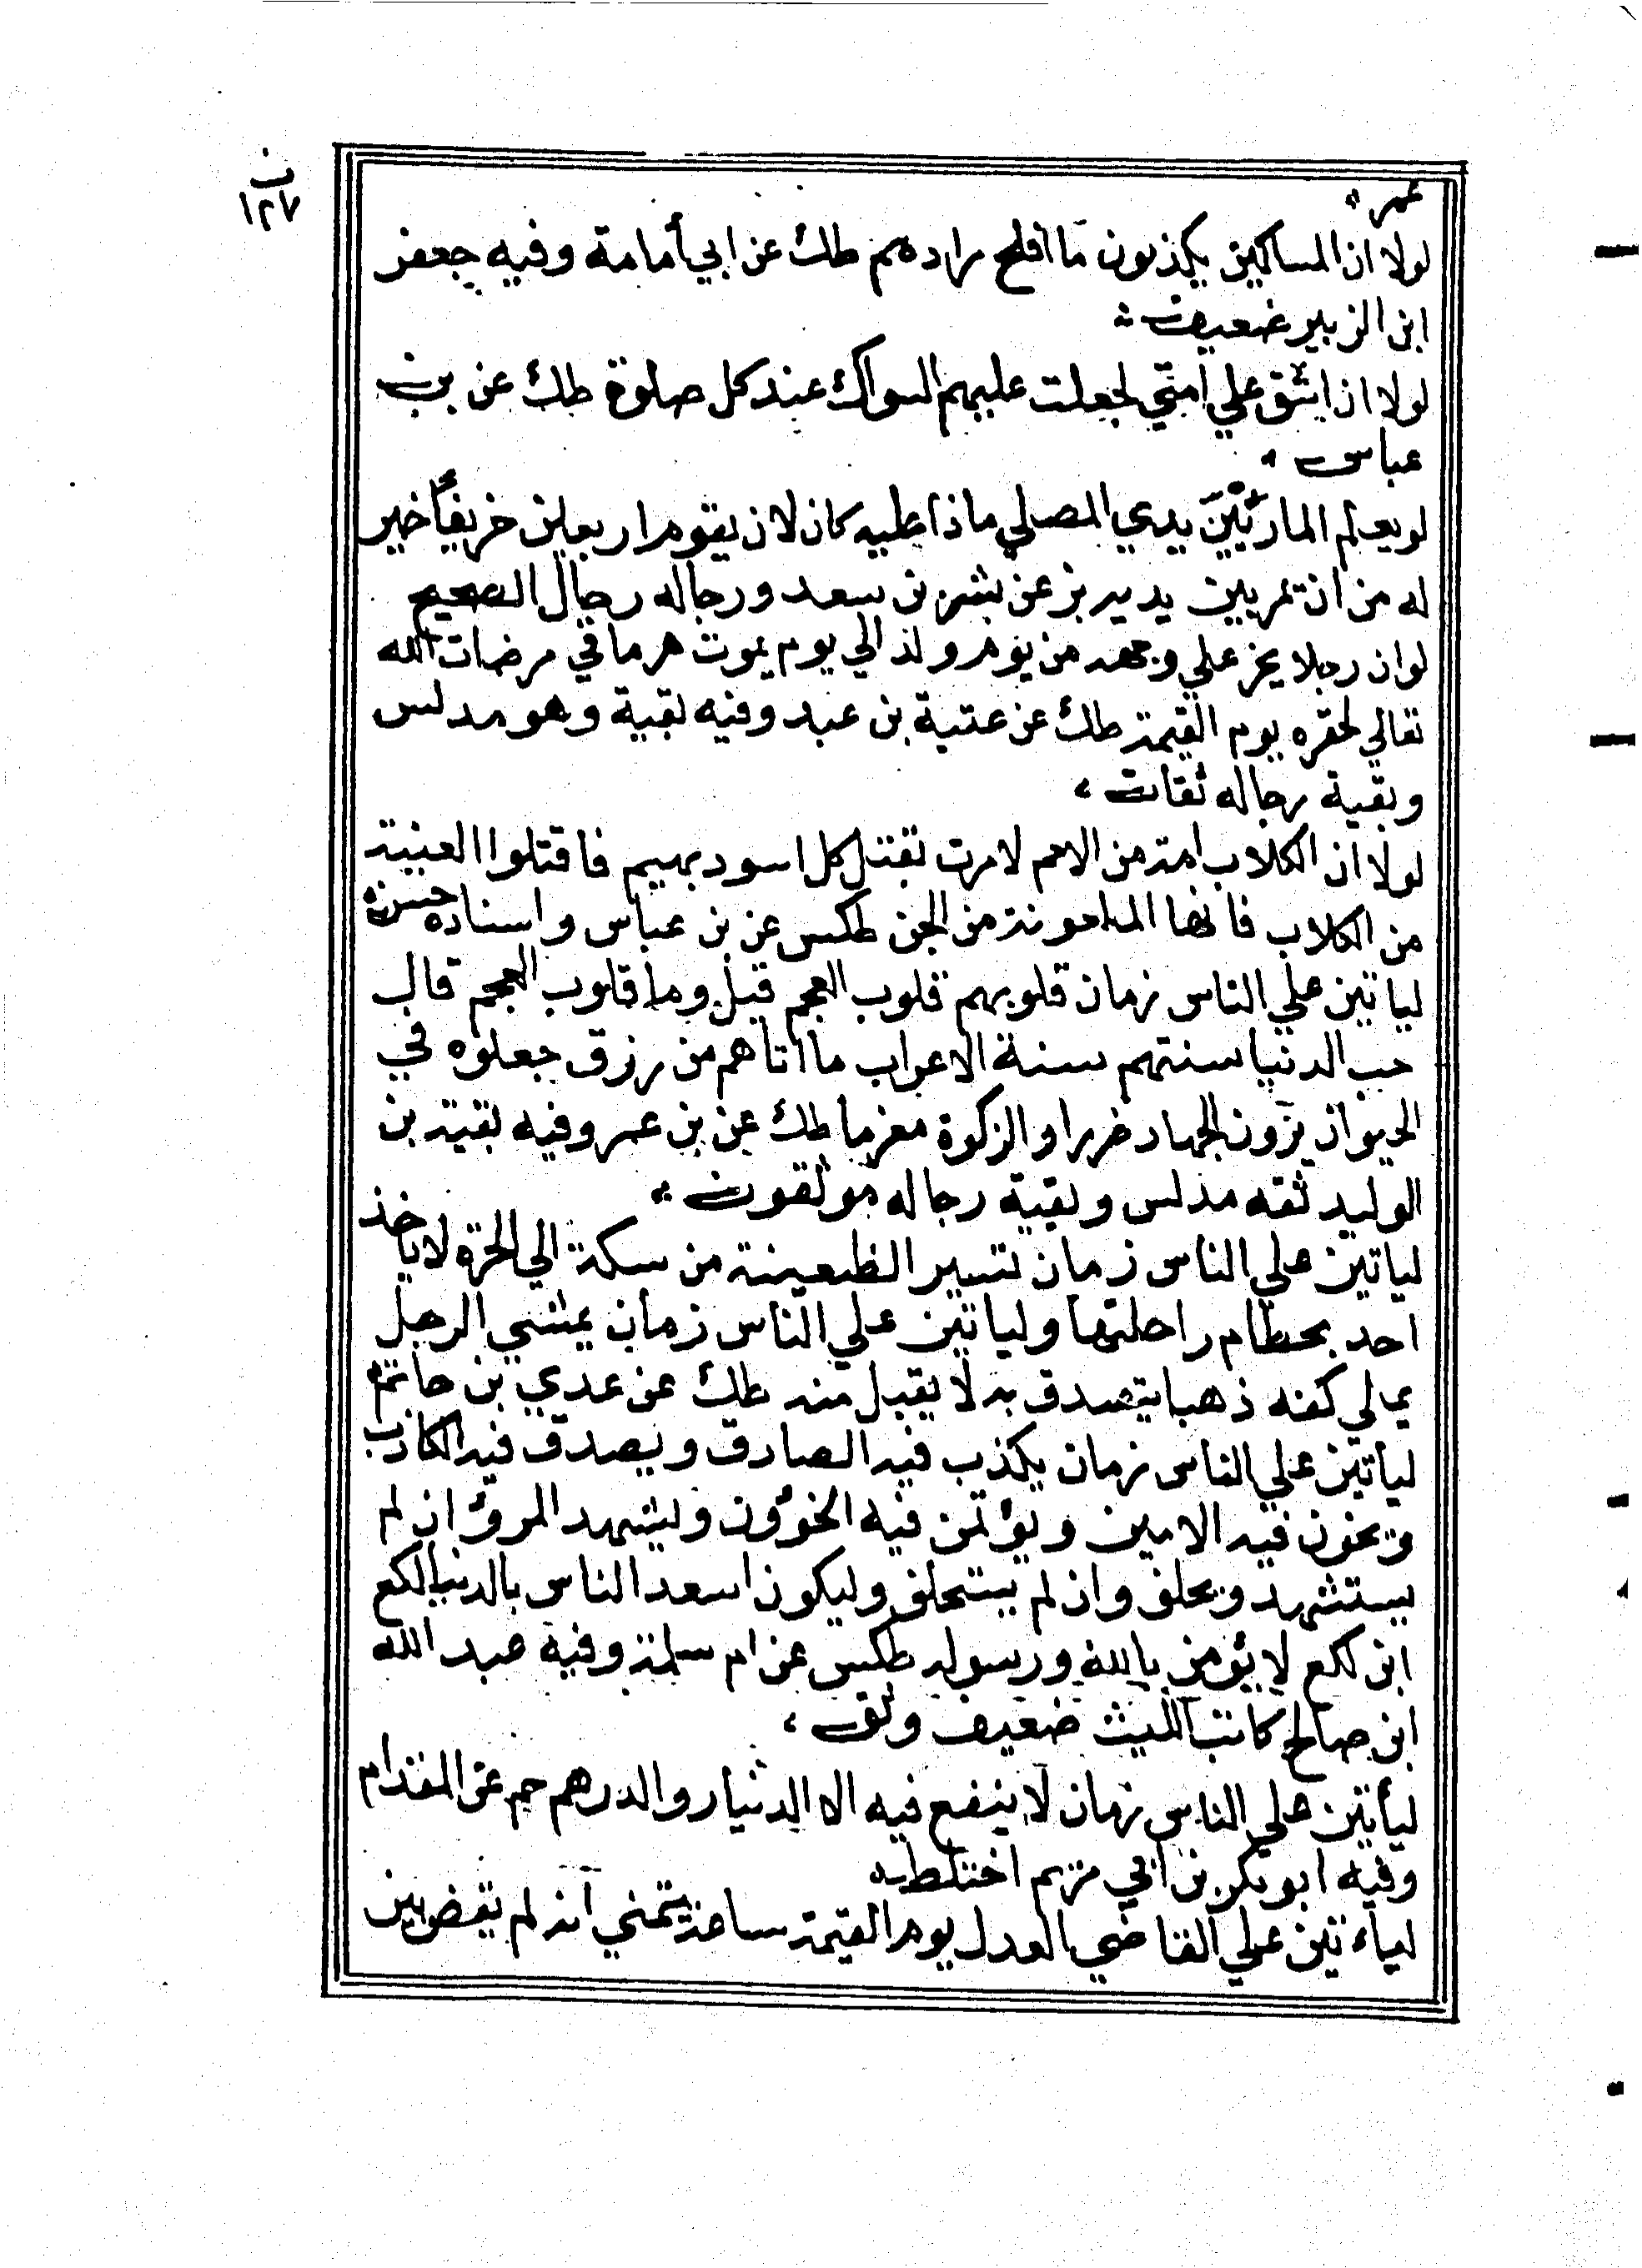 ب
١٢٧
عمر
لولا ان المساكين يكذبون ما افلح رادهم طك عن ابي أمامة وفيه جعفر
ابن الزبير ضعيف
لولا ان اشق علي امتي لجعلت عليهم السواك عند كل صلوة طك عن بن
عباس
لو يعلم المار بَيْنَ يدي المصلي ماذا عليه كان لان يقوم اربعين خريفاً خير
له من ان تمر بين يديه بز عن بشر بن سعد ورجاله رجال الصحيح
لو ان رجلا يخر علي وجهه من يوم ولد الي يوم يموت هرما في مرضات الله
تعالي لحقره يوم القيمة طك عن عتبة بن عبد وفيه بقية وهو مدلس
وبقية رجاله ثقات
لولا ان الكلاب امة من الامم لامرت بقتل كل اسود بهيم فاقتلوا العنينة
من الكلاب فانها الملعونة من الجن طكس عن بن عباس واسناده حسن
لياتين علي الناس زمان قلوبهم قلوب العجم قيل وما قلوب العجم قال
حب الدنيا سنتهم سنة الاعراب ما اتاهم من رزق جعلوه في
الحيوان يرون الجهاد ضررا والزكوة مغرما طك عن بن عمر وفيه بقية بن
الوليد ثقه مدلس وبقية رجاله موثقون
لياتين علي الناس زمان تسير الظعينة من مكة الي الحرة لا ياخذ
احد بحطام راحلتها ولياتين علي الناس زمان يمشي الرجل
يمالي كفه ذهبا يتصدق به لا يقبل منه طك عن عدي بن حاتم
لياتين علي الناس زمان يكذب فيه الصادق ويصدق فيه الكاذب
ويخون فيه الامين ويؤتمن فيه الخؤون وليشهد المرؤ ان لم
يستشهد ويحلف وان لم يستحلف وليكون اسعد الناس بالدنيا لكع
ابن لكع لا يؤمن بالله ورسوله طكس عن ام سلمة وفيه عبد الله
ابن صالح كاتب الليث ضعيف وثق
ليأتين علي الناس زمان لا ينفع فيه الا الدنيار والدرهم حم عن المقدام
وفيه ابو بكر بن ابي مريم اختلط
لياءتين علي القاضي العدل يوم القيمة ساعة يتمني انه لم يقض بين